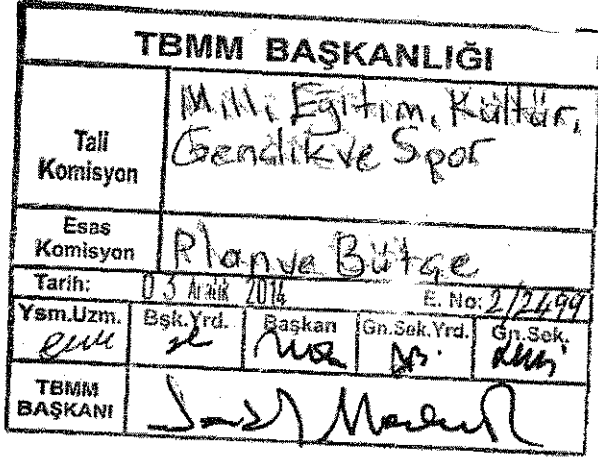 TBMM BAŞKANLIĞI
Tali Komisyon
Milli Eğitim, Kültür,
Gençlik ve Spor
Esas Komisyon
Plan ve Bütçe
Tarih: 03 Aralık 2014 E. No: 2/2499
Ysm.Uzm. Bşk.Yrd. Başkan Gn.Sek.Yrd. Gn.Sek.
TBMM
BAŞKANI